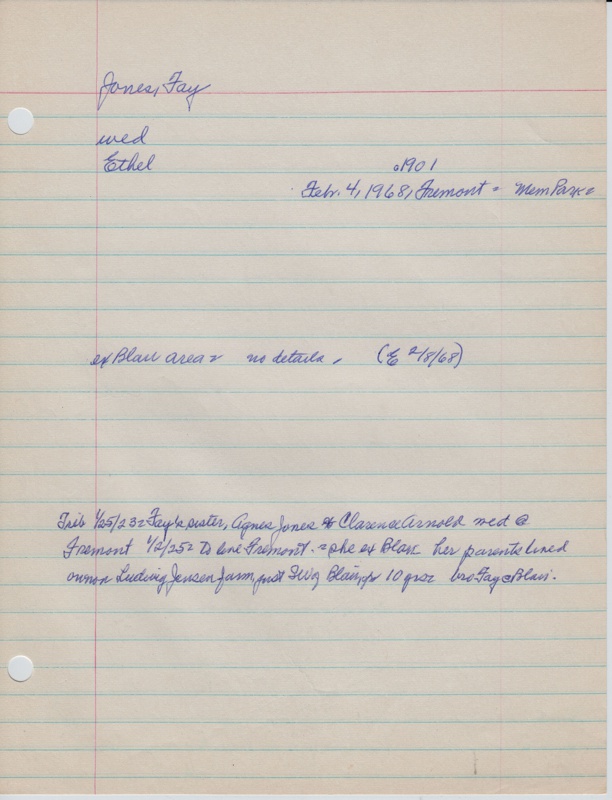 Jones, Fay
wed
Ethel
c1901
Febr. 4, 1968, Fremont = Mem Park =
ex Blair area = no details. (E 2/8/68)
Trib 1/25/23 = Fay's sister, Agnes Jones & Clarence Arnold wed @
Fremont 1/2/25 = To live Fremont. = she ex Blair her parents lived
on Ludwig Jensen farm, just SW of Blair, 10 yrs = bro Fay @ Blair.